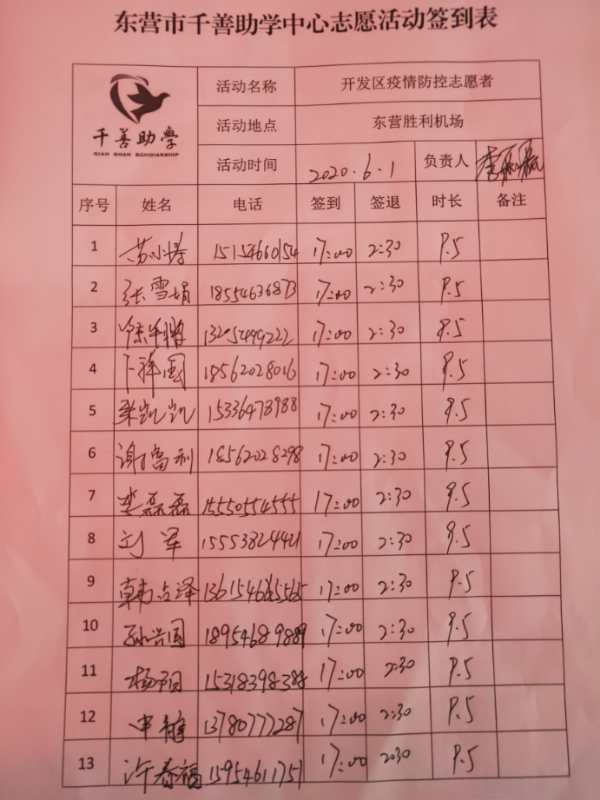 东营市千善助学中心志愿活动签到表
千善助学
QIAN SHAN SCHOLARSHIP
活动名称 开发区疫情防控志愿者
活动地点 东营胜利机场
活动时间 2020.6.1 负责人
序号 姓名 电话 签到 签退 时长 备注
1 苏小涛 15154660154 17:00 2:30 9.5
2 张雪娟 18554636873 17:00 2:30 9.5
3 17:00 2:30 9.5
4 卞祥国 18562028016 17:00 2:30 9.5
5 梁凯凯 15336473988 17:00 2:30 9.5
6 谢富利 18562028298 17:00 2:30 9.5
7 李磊磊 15550554555 17:00 2:30 9.5
8 刘军 17:00 2:30 9.5
9 韩占泽 17:00 2:30 9.5
10 孙兴国 18954689889 17:00 2:30 9.5
11 杨阳 17:00 2:30 9.5
12 13780777287 17:00 2:30 9.5
13 许春福 15954611751 17:00 2:30 9.5